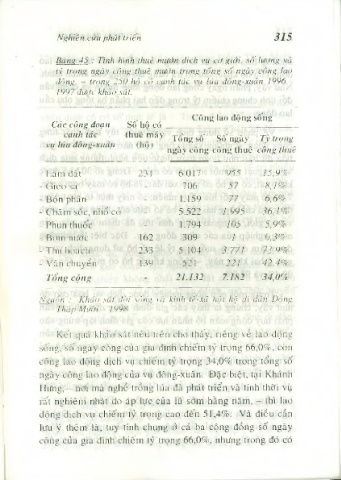 Nghiên cứu phát triển 315
Bảng 45 : Tình hình thuê mướn dịch vụ cơ giới, số lượng và
tỷ trọng ngày công thuê mướn trong tổng số ngày công lao
động, - trong 250 hộ có canh tác vụ lúa đông-xuân 1996
1997 được khảo sát.
Các công đoạn canh tác vụ lúa đông-xuân Số hộ có thuê máy (hộ) Công lao động sống
Tổng số ngày công Số ngày công thuê Tỷ trọng công thuê
- Làm đất 231 6.017 955 15,9%
- Gieo sạ - 706 57 8,1%
- Bón phân - 1.159 77 6,6%
- Chăm sóc, nhổ cỏ - 5.522 1.995 36,1%
- Phun thuốc - 1.794 105 5,9%
- Bơm nước 162 309 1 0,3%
- Thu hoạch 233 5.104 3.771 73,9%
- Vận chuyển 139 521 221 42,4%
Tổng cộng - 21.132 7.182 34,0%
Nguồn : Khảo sát đời sống và kinh tế-xã hội hộ di dân Đồng
Tháp Mười - 1998
Kết quả khảo sát nêu trên cho thấy, riêng về lao động
sống, số ngày công của gia đình chiếm tỷ trọng 66,0%, còn
công lao động dịch vụ chiếm tỷ trọng 34,0% trong tổng số
ngày công lao động của vụ đông-xuân. Đặc biệt, tại Khánh
Hưng, – nơi mà nghề trồng lúa đã phát triển và tính thời vụ
rất nghiêm nhặt do áp lực của lũ sớm hằng năm, – thì lao
động dịch vụ chiếm tỷ trọng cao đến 51,4%. Và điều cần
lưu ý thêm là, tuy tính chung ở cả ba cộng đồng số ngày
công của gia đình chiếm tỷ trọng 66,0%, nhưng trong đó có